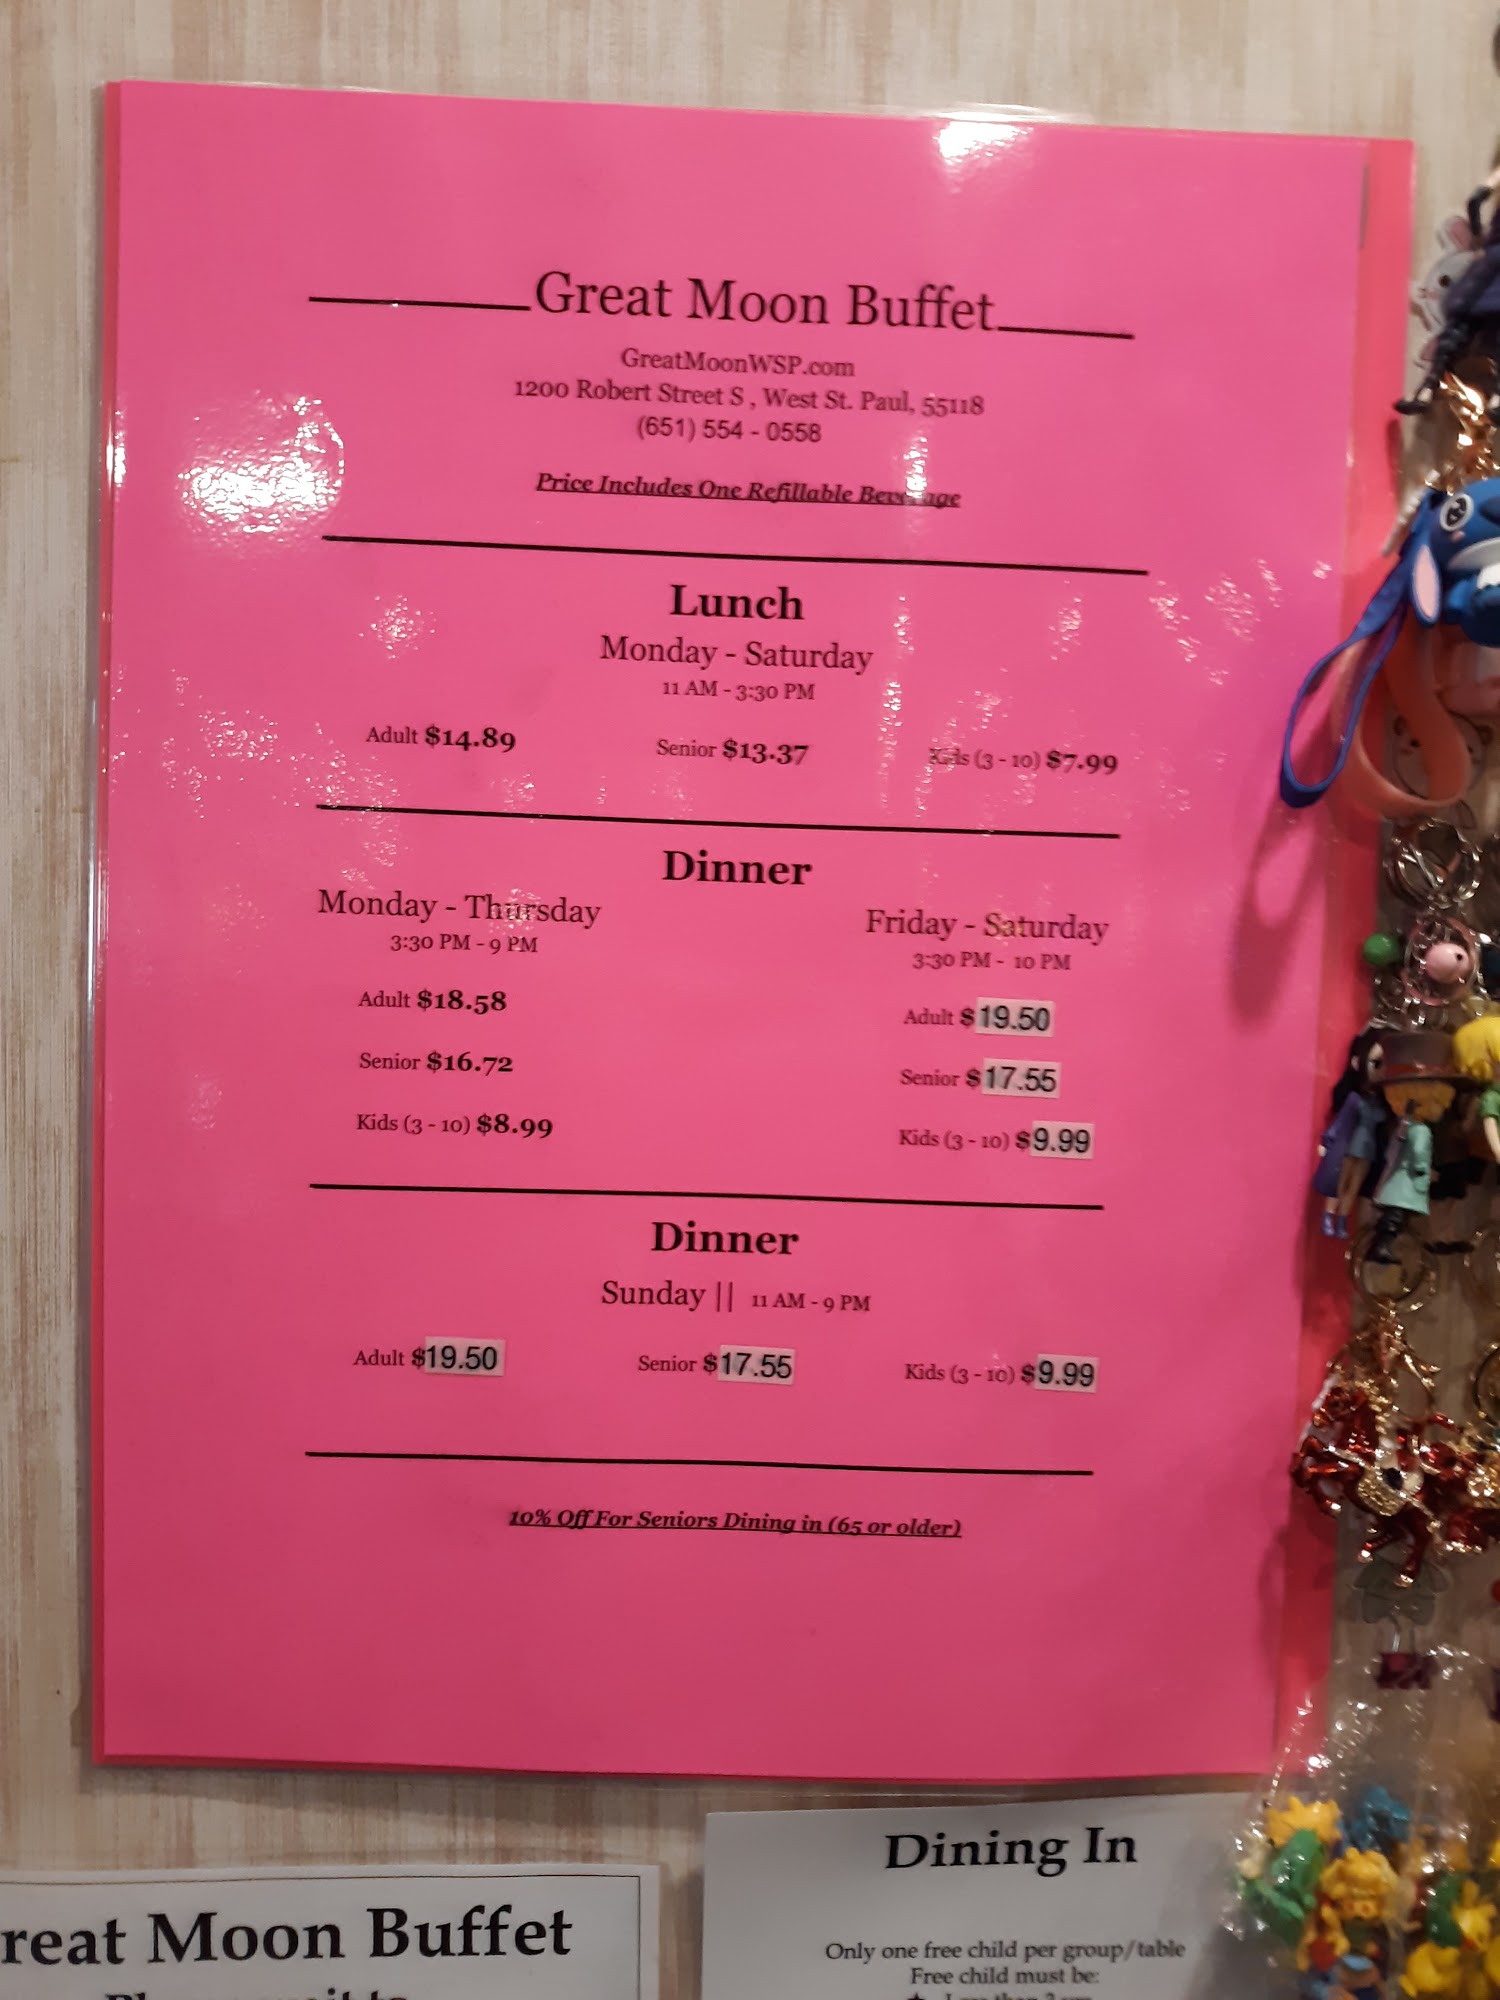 Great Moon Buffet
GreatMoonWSP.com
1200 Robert Street S , West St. Paul, 55118
(651) 554 - 0558
Price Includes One Refillable Beverage
Lunch
Monday - Saturday
11 AM - 3:30 PM
Adult $14.89 Senior $13.37 Kids (3 - 10) $7.99
Dinner
Monday - Thursday
3:30 PM - 9 PM
Adult $18.58
Senior $16.72
Kids (3 - 10) $8.99
Friday - Saturday
3:30 PM - 10 PM
Adult $19.50
Senior $17.55
Kids (3 - 10) $9.99
Dinner
Sunday || 11 AM - 9 PM
Adult $19.50 Senior $17.55 Kids (3 - 10) $9.99
10% Off For Seniors Dining in (65 or older)
reat Moon Buffet
Dining In
Only one free child per group/table
Free child must be: